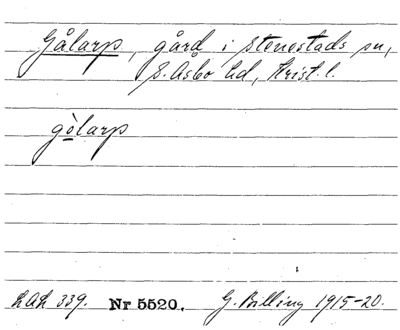 Gålarp, gård i Stenestads sn,
S. Åsbo hd, Krist. l.
gòlarp
LAL 339. Nr 5520. G. Billing 1915-20.